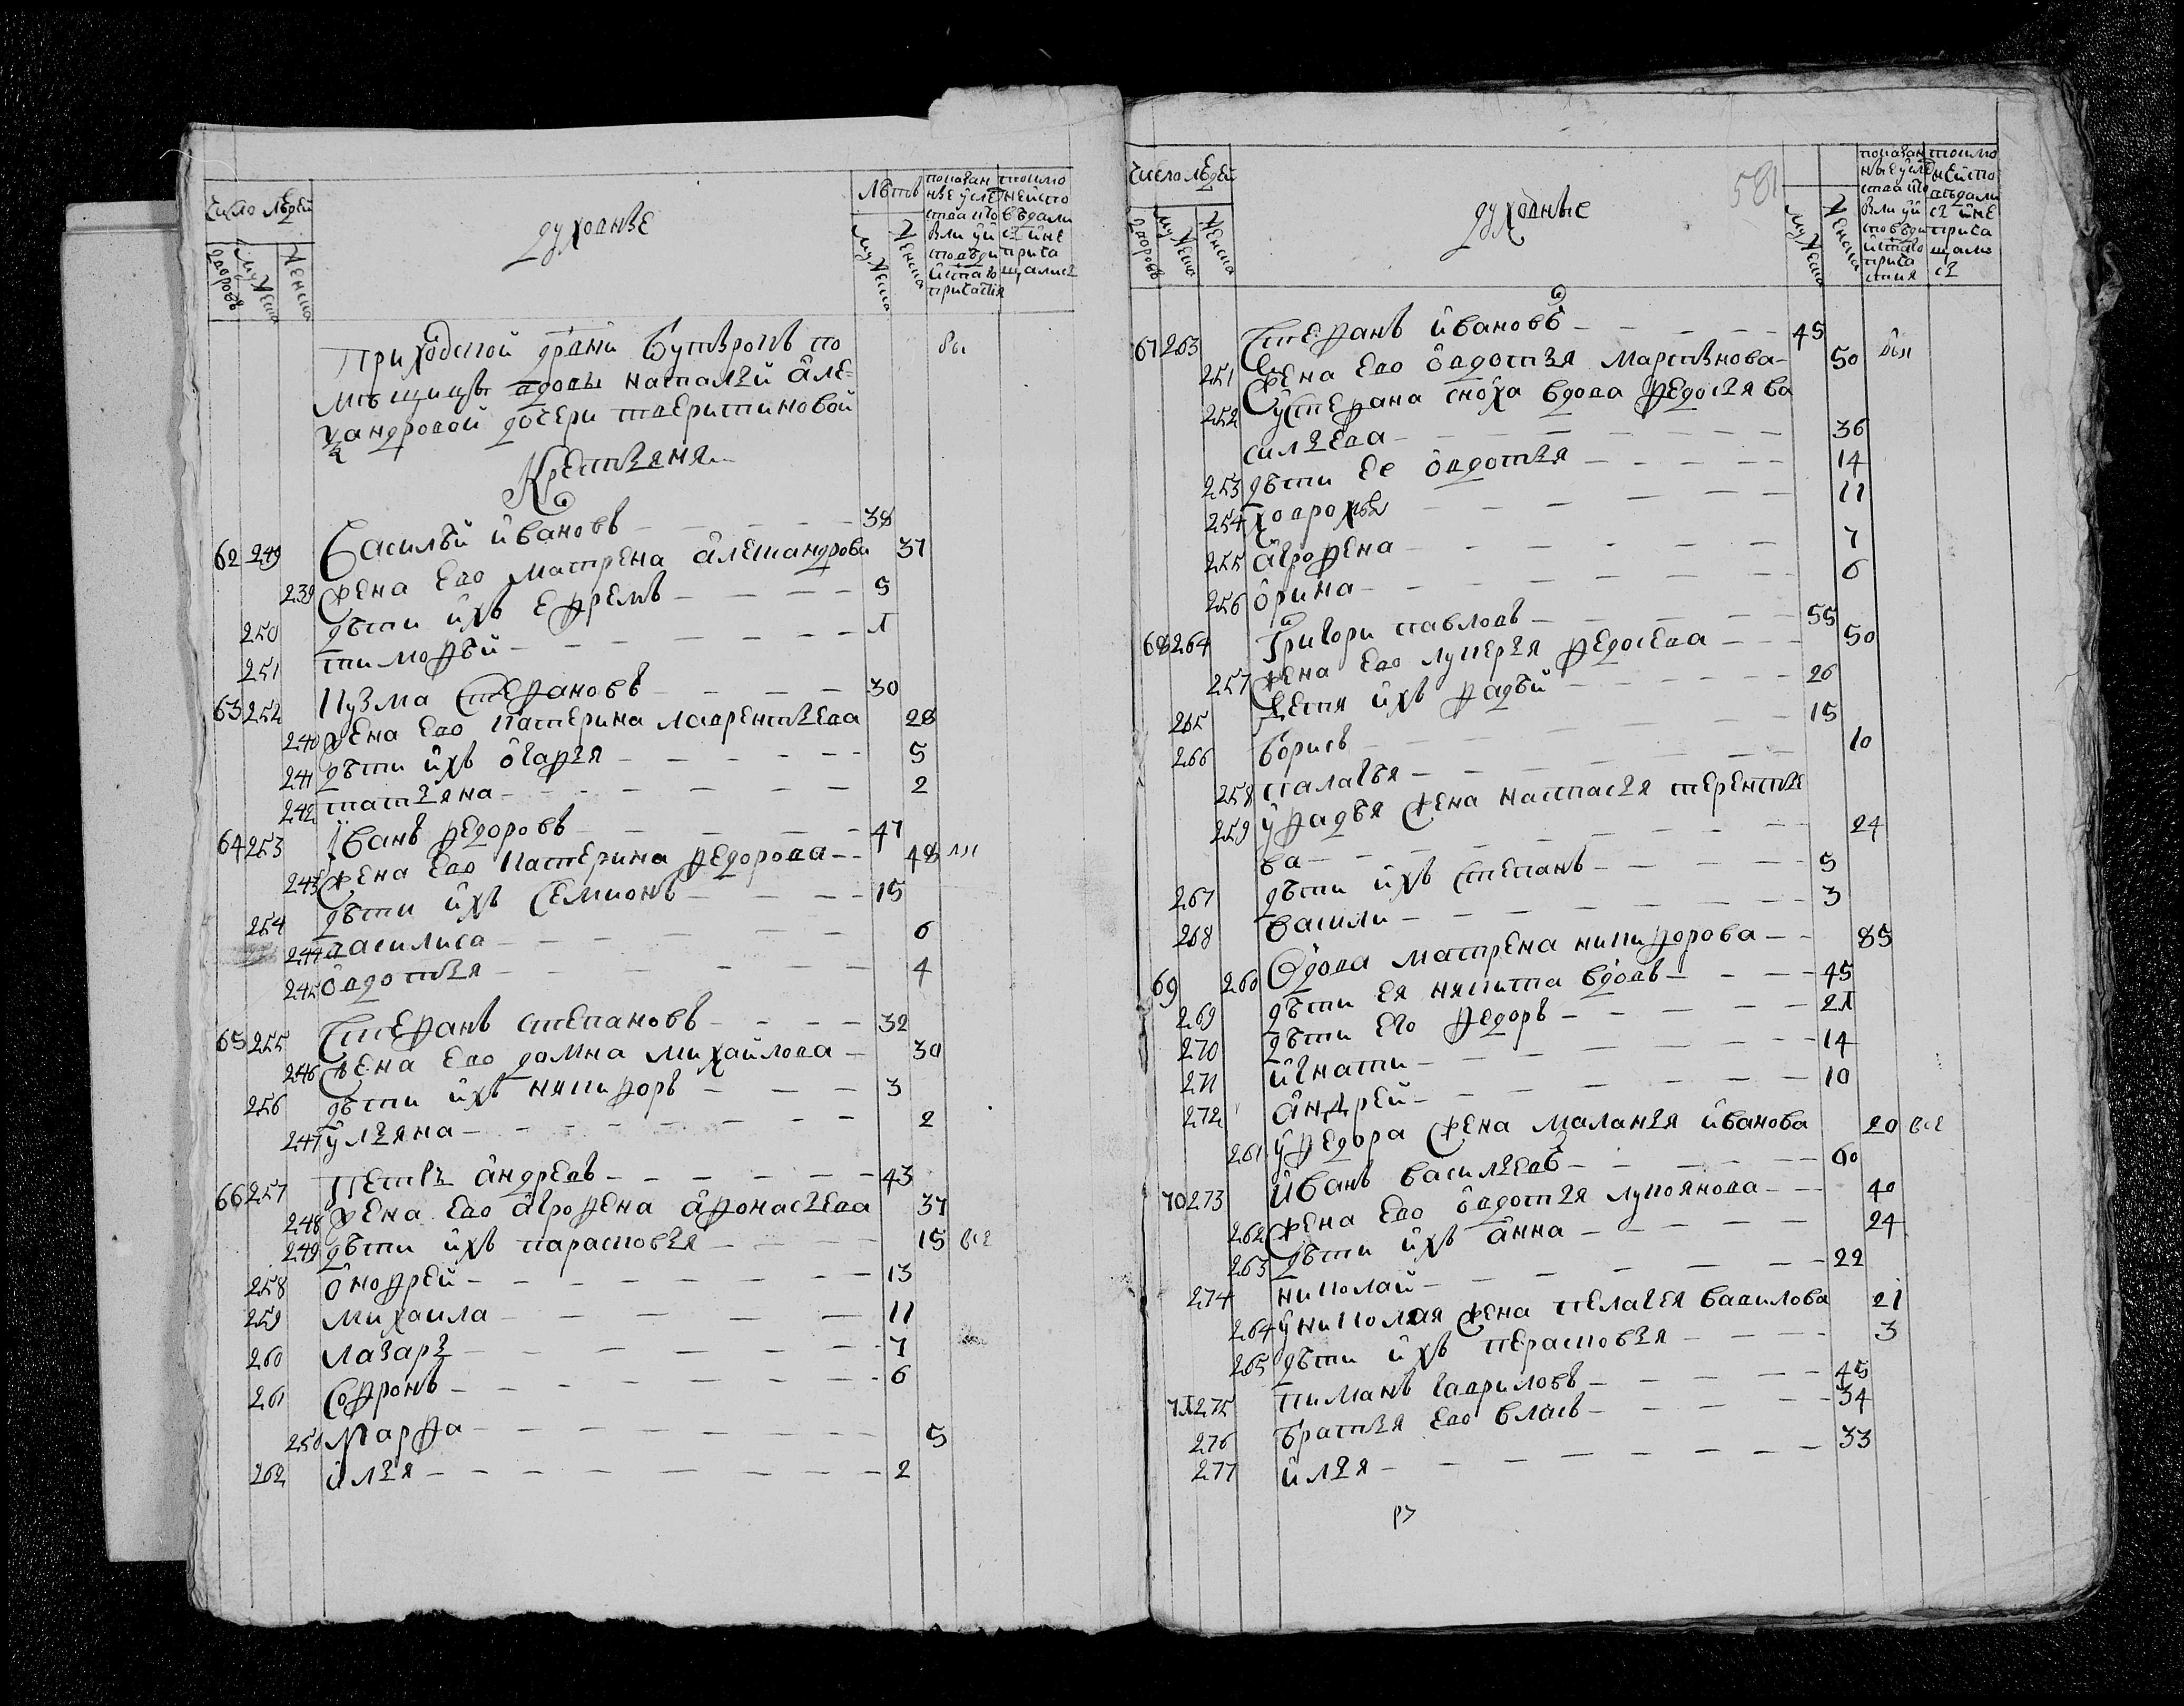 число людей
духовные
лѣтъ
дворовъ
мужеска
женска
мужеска
женска
помѣщицы вдовы натальи але-
ѯандровой дочери тверитиновой
Крестьяня
62 249 Василѣй ивановъ 38
239 жена ево матрена алеѯандрова 37
250 дѣти ихъ ефремъ 5
251 тимофѣй 1
63 252 Кузма Стефановъ 30
240 жена ево катерина лаврентьева 28
241 дѣти ихъ огафья 5
242 татьяна 2
64 253 Иванъ федоровъ 47
243 жена ево катерина федорова 48
254 дѣти ихъ Семионъ 15
244 василиса 6
245 овдотья 4
65 255 Стефанъ степановъ 32
246 жена ево домна михайлова 30
256 дѣти ихъ някифоръ 3
247 ульяна 2
66 257 петръ андревъ 43
248 жена ево агрофена афонасьева 37
249 дѣти ихъ парасковья 15 все
258 онофрей 13
259 михаила 11
260 лазарь 7
261 Софронъ 6
250 марфа 5
262 илья 2
581
число людей
духовные
дворовъ
мужеска
женска
мужеска
женска
67 263 Стефанъ ивановъ 45
251 жена ево овдотья мартынова 50
252 У Стефана сноха вдова федосья ва
сильева 36
253 дѣти ее овдотья 14
254 ховрожья 11
255 агрофена 7
256 орина 6
68 264 Григори павловъ 55
257 жена ево лукерья федосева 50
265 детя ихъ фадѣй 26
266 борисъ 15
258 палагѣя 10
259 у фадѣя жена настасья терентье
ва 24
267 дѣти ихъ степанъ 5
268 васили 3
69 260 Вдова матрена никифорова 85
269 дѣти ея някита вдовъ 45
270 дѣти его федоръ 21
271 игнати 14
272 андрей 10
261 у федора жена маланья иванова 20 все
70 273 Иванъ васильевъ 60
262 жена ево овдотья лукоянова 40
263 дѣти ихъ анна 24
274 николай 22
264 у николая жена пелагея вавилова 21
265 дѣти ихъ перасковья 3
71 275 пиманъ гавриловъ 45
276 братья ево власъ 34
277 илья 33